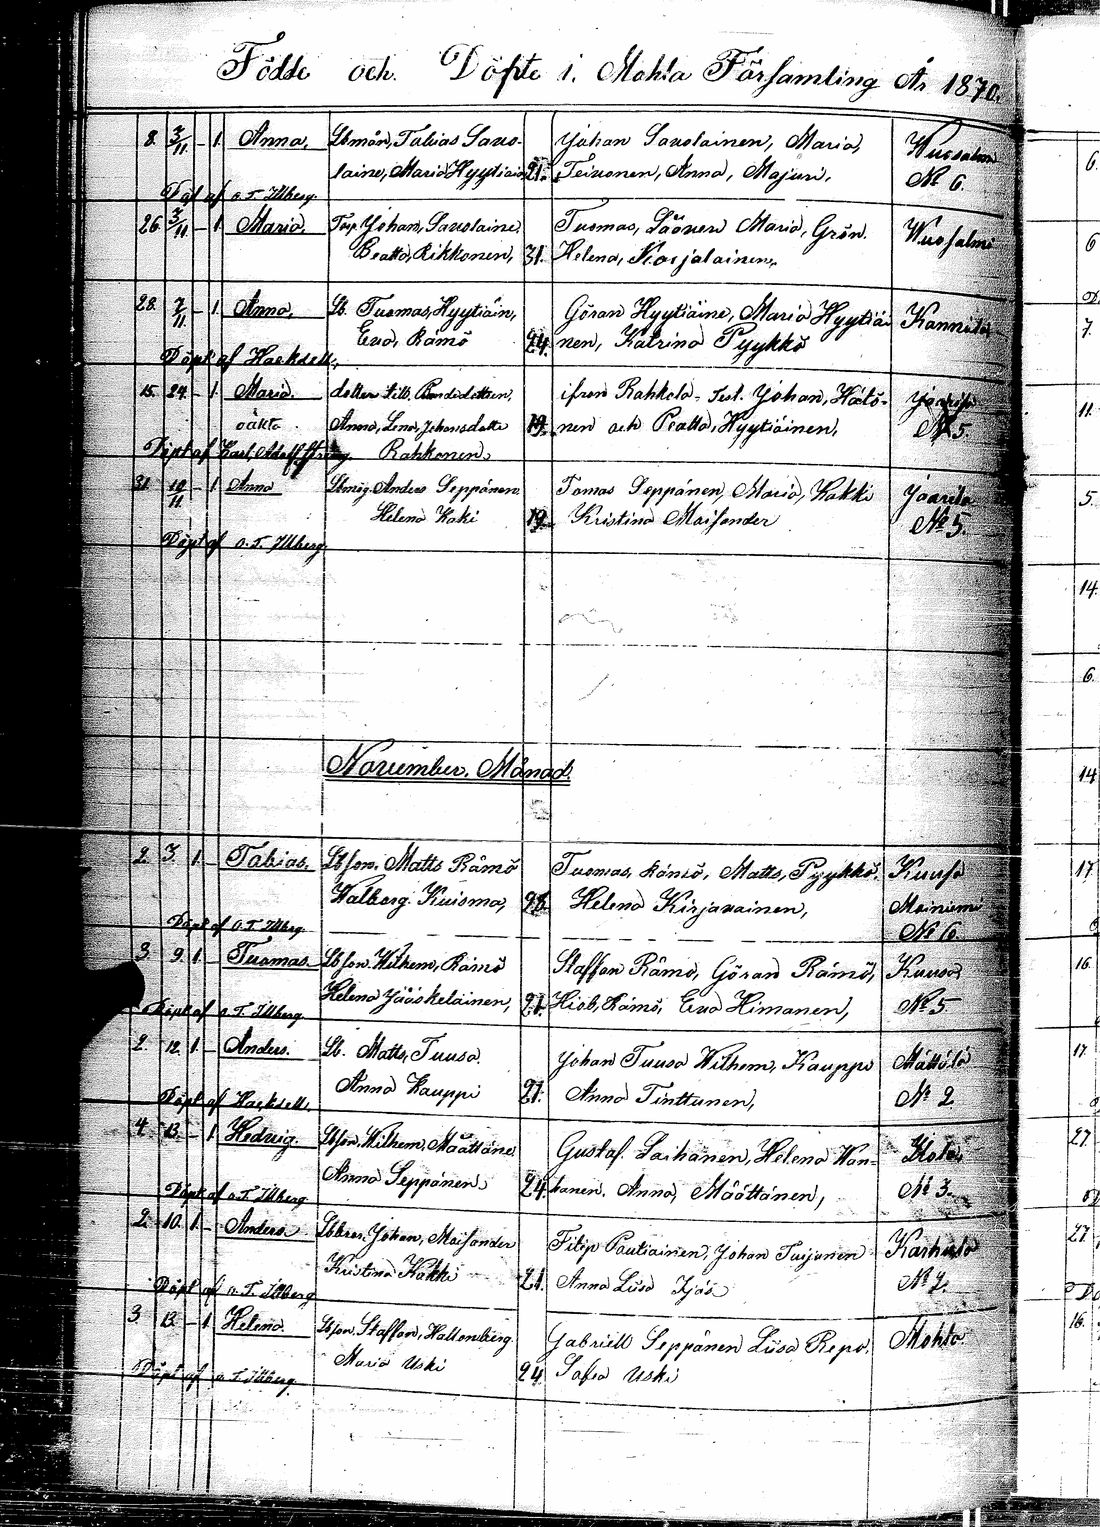 Födde och Döpte i Mohla Församling År 1870.
8. 3/11 – 1 Anna, Lbmån, Tobias Savo- Johan Savolainen, Maria, Wuosalmi
laine, Maria Hyytiäin 21. Teivonen, Anna, Majuri, № 6.
Döpt af o. T. Illberg.
26. 3/11 – 1 Maria. Johan, Savolaine. Tuomas, Läönen Maria, Grön. Wuosalmi
Beatta, Rikkonen, 31. Helena, Karjalainen,
28. 7/11 – 1 Anna, Lb. Tuomas, Hyytiäin, Göran Hyytiäine, Maria Hyytiäi Kannila
Eva, Rämö 24. nen, Katrina Pyykkö
Döpt af Hacksell,
15. 24. – 1 Maria. ifrån Rahkola Test. Johan, Hätö- Jäärilä
oäkta Anna, Lena, Johansdotte 19. nen och Beatta, Hyytiäinen, № 5.
Döpt af Karl Adolf Rahkonen
31. 10/11 – 1 Anna Lbmåg. Anders Seppänen Tomas Seppänen, Maria, Kakki Jäärilä
Helena Kaki 19. Kristina Maisander № 5.
Döpt af o. T. Illberg.
November. Månad.
2. 3. 1. – Tobias. Lbson. Matts Rämö Tuomas, Rämö, Matts, Pyykkö. Kuusa
Walborg. Kuisma, 28. Helena Kirjavainen, Moiniemi
Döpt af o. T. Illberg. № 6.
3. 9. 1. – Tuomas. Lbson. Wilhem, Rämö Staffan Rämö, Göran Rämö, Kuusa
Helena Jääskeläinen, 21. Hiob, Rämö, Eva Himanen, № 5.
Döpt af o. T. Illberg.
2. 12. 1. – Anders. Lb. Matts, Tuusa. Johan Tuusa Wilhem, Kauppi Mättölä
Anna Kauppi 27. Anna Tinttunen, № 2
Döpt af Hacksell.
4. 13. – 1 Hedvig. Lbson. Wilhem, Määttäne. Gustaf. Saihanen, Helena Wan- Kota
Anna Seppänen 24. hanen. Anna, Määttänen, № 3.
Döpt af o. T. Illberg
2. 10. 1. – Anders. Lbbror. Johan, Maisander Filip Pautiainen, Johan Tuijunen Karhula
Kristina Kakki 21. Anna Lisa Ijäs № 2.
Döpt af o. T. Illberg
3. 13. – 1 Helena. Lbson. Staffan, Hallenberg Gabriell Seppänen Lisa Repo. Mohla
Maria Uski 24. Sofia Uski
Döpt af o. T. Illberg.
6.
6
7.
11.
5.
14.
6.
14
17.
16.
17.
27.
27
16.